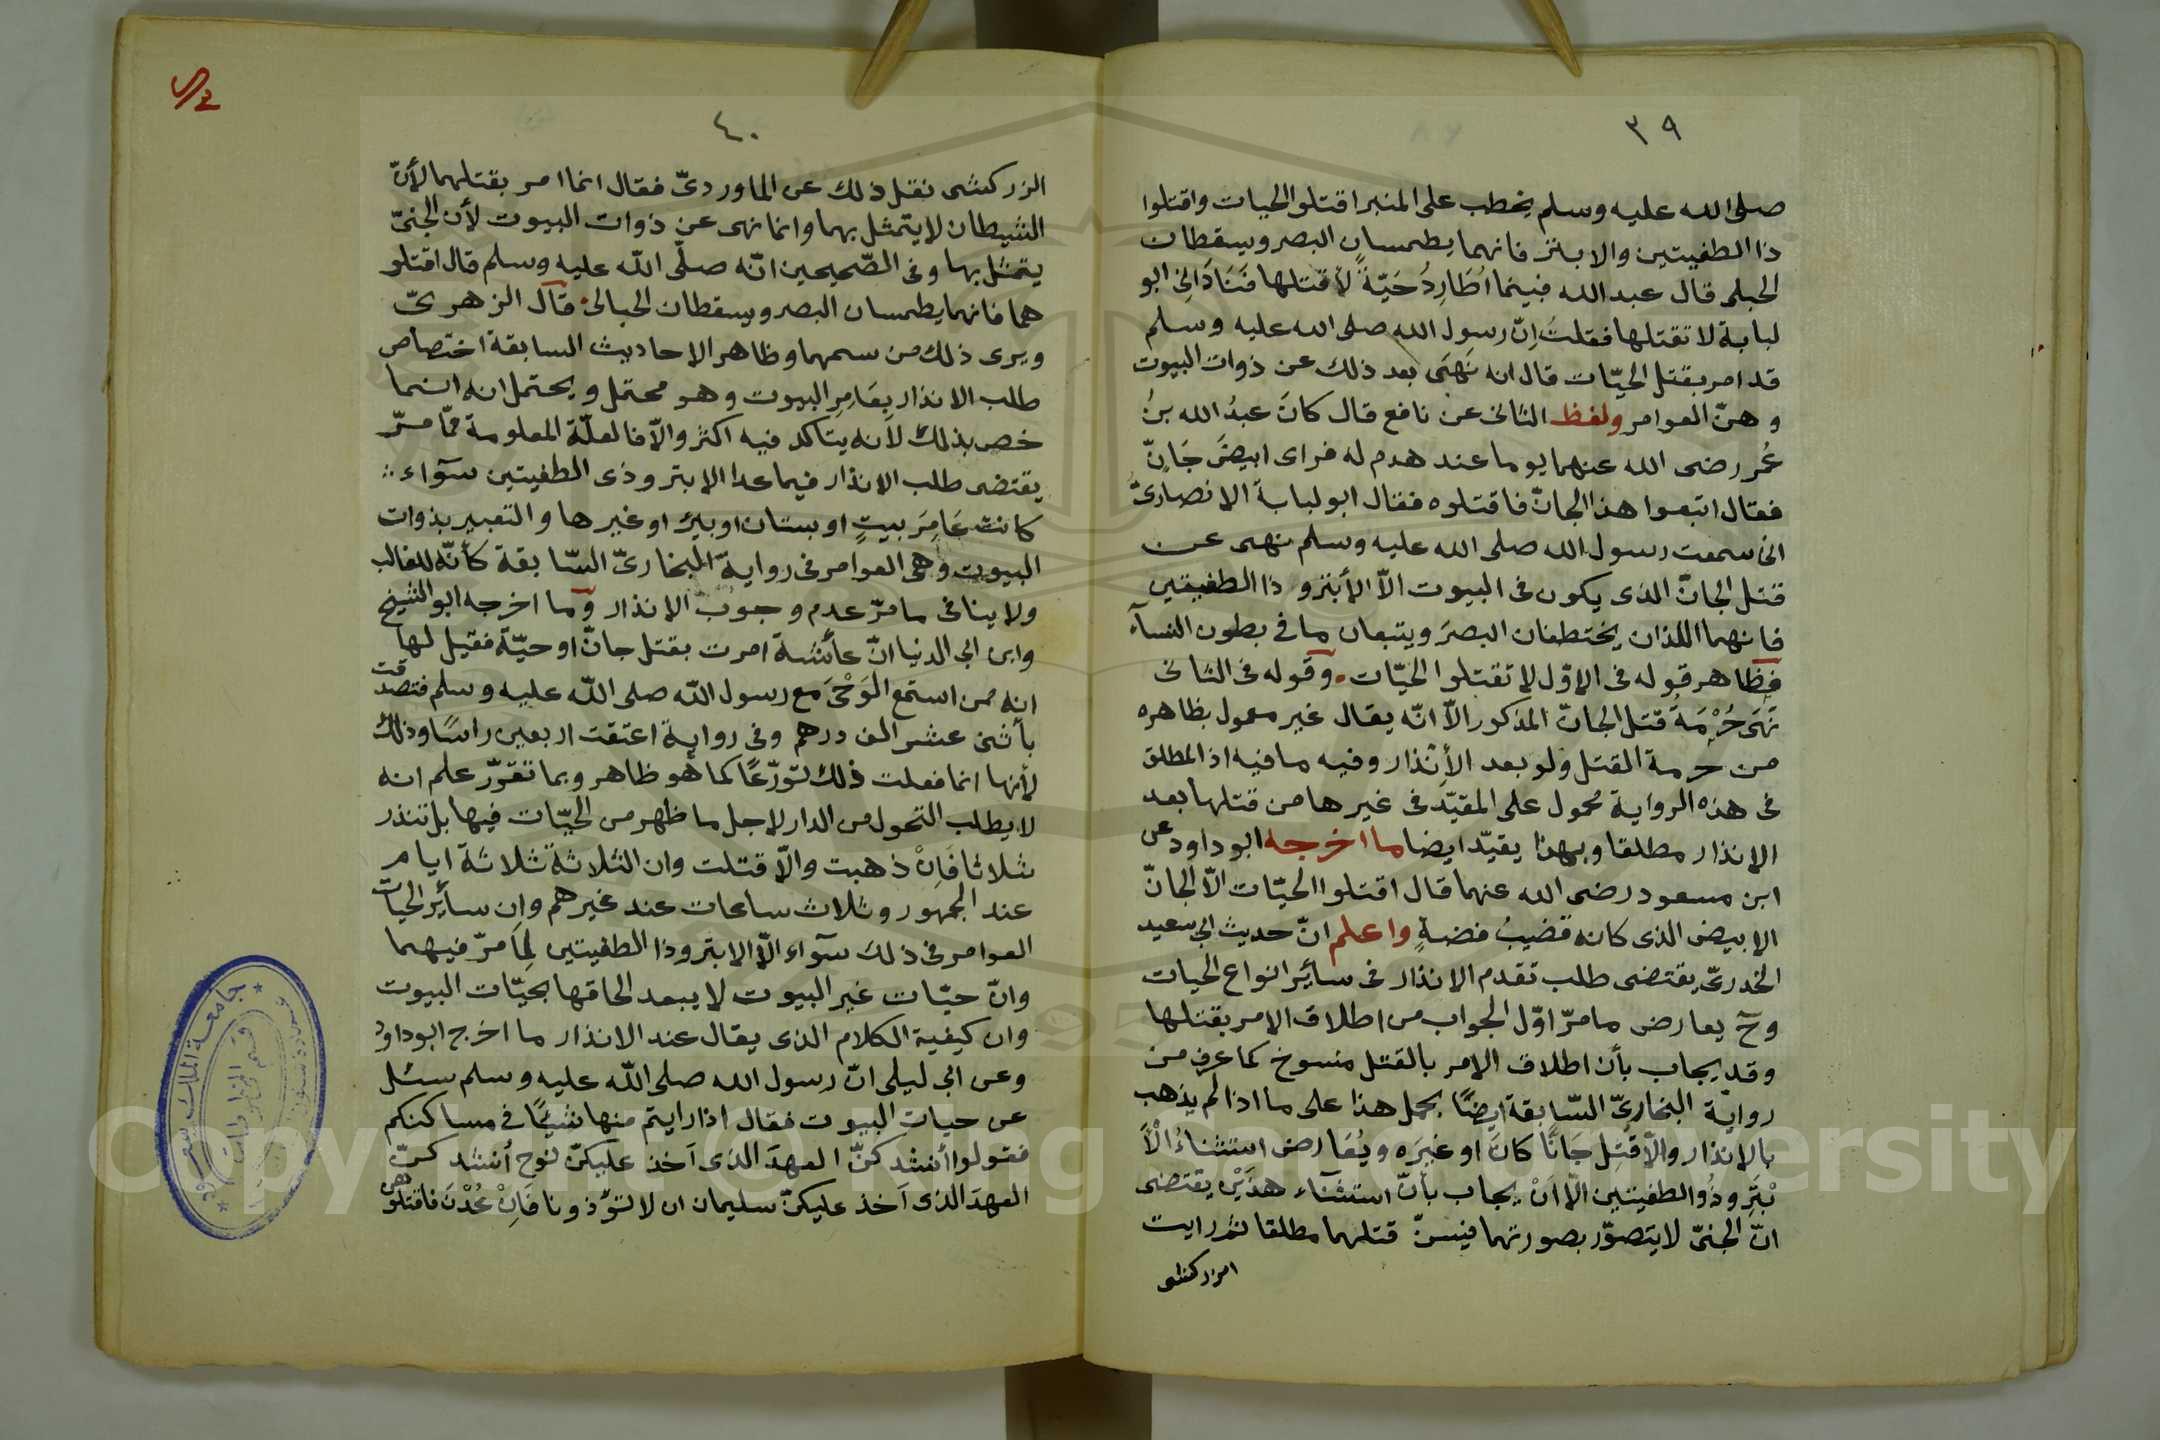 ٣٩
صلى الله عليه وسلم يخطب على المنبر اقتلوا الحيات واقتلوا
ذا الطفيتين والابتر فانهما يطمسان البصر ويسقطان
الحبلى قال عبد الله فبينما اُطَارِدُ حَيّةً لأقتلها فَنَادَانِى ابو
لبابة لا تقتلها فقلتُ اِنّ رسول الله صلى الله عليه وسلم
قد امر بقتل الحيّات قال انه نَهَى بعد ذلك عن ذوات البيوت
وهنّ العوامر ولفظ الثانى عن نافع قال كانَ عبدُ الله بنُ
عُمر رضى الله عنهما يوما عند هدم له فراى ابيضَ جَانّ
فقال اتبعوا هذا الجانّ فاقتلوه فقال ابو لبابة الانصارىّ
انى سمعت رسول الله صلى الله عليه وسلم نهى عن
قتل الجانّ الذى يكون فى البيوت الاّ الأبتر وذا الطفيتين
فانهما اللذان يختطفان البصرَ ويتبعان ما فى بطون النسآء
فظاهر قوله فى الاوّل لا تقتلوا الحيّات وقوله فى الثانى
نَهَى حُرْمَةَ قتل الجانّ المذكور الاّ انّه يقال غير معمول بظاهره
من حرمة القتل ولو بعد الأِنْذار وفيه ما فيه اذ المطلق
فى هذه الرواية محمول على المقيّد فى غيرها من قتلها بعد
الانذار مطلقا وبهذا يقيّد ايضا ما اخرجه ابو داود عن
ابن مسعود رضى الله عنهما قال اقتلوا الحيّات الاّ الجانّ
الابيض الذى كانه قضيبُ فضةٍ واعلم انّ حديث ابى سعيد
الخدرىّ يقتضى طلب تقدم الانذار فى سائر انواع الحيات
وحٓ يعارض ما مرّ اوّل الجواب من اطلاق الامر بقتلها
وقد يجاب بأن اطلاق الامر بالقتل منسوخ كما عرف من
رواية البخارىّ السّابقة ايضًا يحمل هذا على ما اذا لم يذهب
بالانذار والاّ قُتِل جَانًا كانَ او غيرَه ويُعَارض استثناءُ الْأَ
بْتَرِ وذُوالطفيتين الاّ اَنْ يجاب بأنّ استثنآء هذَيْن يقتضى
انّ الجنىّ لا يتصوّر بصورتهما فيسنّ قتلهما مطلقا ثم رايت
الزركشى
٤٠
الزركشى نقل ذلك عن الماوردىّ فقال انما امر بقتلهما لأنّ
الشيطان لا يتمثل بهما وانما نهى عن ذوات البيوت لأن الجنىّ
يتمثل بها وفى الصّحيحين انّه صلّى اللّه عليه وسلم قال اقتلو
هما فانهما يطمسان البصر ويسقطان الحبالى قال الزهرىّ
ويرى ذلك من سمهما وظاهر الاحاديث السابقة اختصاص
طلب الانذار بِعَامِرِ البيوت وهو محتمل ويحتمل انه انما
خص بذلك لأنه يتاكد فيه اكثر والاّ فالعلّة المعلومة ممّا مرّ
يقتضى طلب الانذار فيما عدا الابتر وذى الطفيتين سوآء
كانت عَامِرَ بيتٍ او بستان او بئر او غيرها والتعبير بذوات
البيوت وهى العوامر فى رواية البخارىّ السّابقة كأنّه للغالب
ولا ينافى ما مرّ عدم وجوب الانذار وما اخرجه ابو الشيخ
وابن ابى الدنيا انّ عائشة امرت بقتل جانّ او حيّة فقيل لها
انه ممن استمع الوَحْىَ مع رسول اللّه صلى اللّه عليه وسلم فتصدقت
بأثنى عشر الف درهم وفى رواية اعتقت اربعين راسًا وذلك
لأنها انما فعلت ذلك تورّعًا كما هو ظاهر وبما تقرّر علم انه
لا يطلب التحول من الدار لاجل ما ظهر من الحيّات فيها بل تنذر
ثلاثا فَاِنْ ذهبت والاّ قتلت وان الثلاثة ثلاثة ايام
عند الجمهور وثلاث ساعات عند غيرهم وان سائر الحيات
العوامر فى ذلك سوآء الاّ الابتر وذا الطفيتين لِمَا مرّ فيهما
وانّ حيّات غير البيوت لا يبعد الحاقها بحيّات البيوت
وان كيفية الكلام الذى يقال عند الانذار ما اخرج ابو داود
وعن ابى ليلى انّ رسول الله صلى اللّه عليه وسلم سئل
عن حيات البيوت فقال اذا رايتم منها شيئًا فى مساكنكم
فقولوا أنشدكنّ العهدَ الذى آخذ عليكنّ نوح أُنشدكنّ
العهدَ الذى آخذ عليكنّ سليمان ان لا تؤذونا فَاِنْ عُدْنَ فاقتلوهن
جامعة الملك سعود
قسم المخطوطات
Copyright © King Saud University